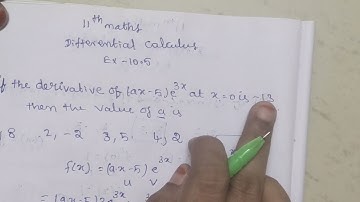 11th maths
Differential Calculus
Ex - 10.5
If the derivative of (ax-5) e^3x at x=0 is -13
then the value of a is
8 2, -2 3, 5 4, 2
f(x) = (ax-5) e^3x
u v
= (ax-5) 3e^3x